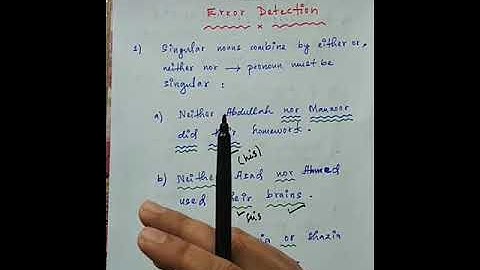 Error Detection
x
1) Singular nouns combine by either or,
neither nor → pronoun must be
singular :
a) Neither Abdullah nor Manzoor
did homework .
(his)
b) Neither Asad nor Ahmed
used their brains .
his
or Shazia